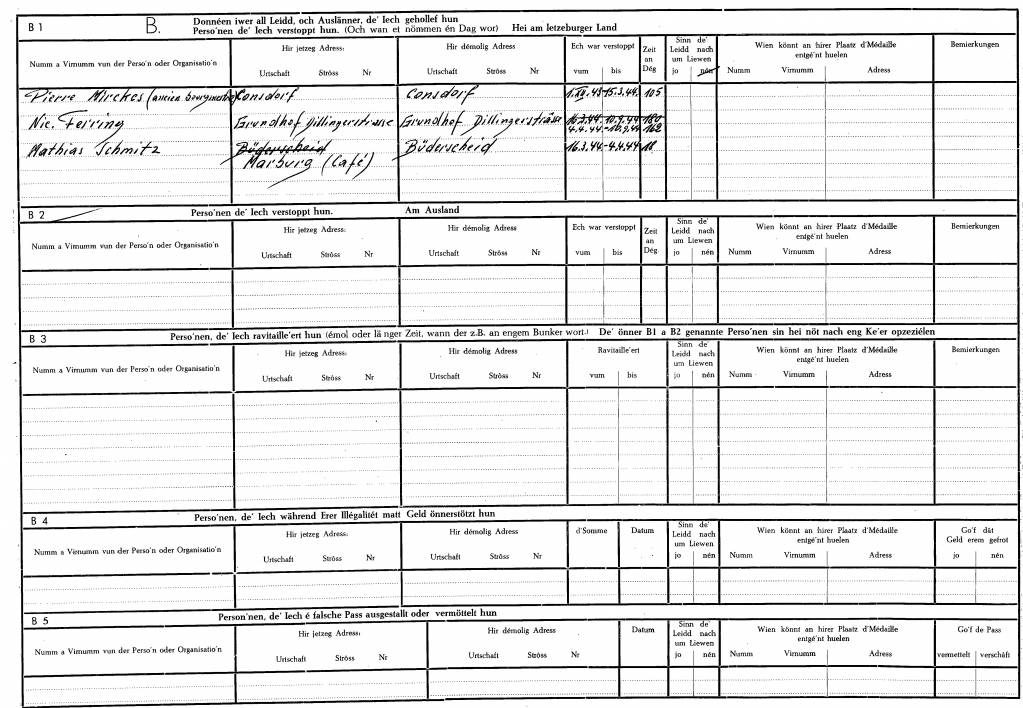 B 1 B. Donnéen iwer all Leidd, och Auslänner, de' Iech gehollef hun
Perso'nen de' Iech verstoppt hun. (Och wan et nömmen én Dag wor) Hei am letzeburger Land
Numm a Virnumm vun der Perso'n oder Organisatio'n Hir jetzeg Adress: Hir démolig Adress Ech war verstoppt Zeit an Dég Sinn de' Leidd nach um Liewen Wien könnt an hirer Plaatz d'Médaille entgé'nt huelen Bemierkungen
Urtschaft Ströss Nr Urtschaft Ströss Nr vum bis jo nén Numm Virnumm Adress
Pierre Mirckes (ancien bourgmestre) Consdorf Consdorf 1.XII.43-15.3.44. 105
Nic. Ferring Grundhof Dillingerstrasse Grundhof Dillingerstrasse 16.3.44-10.9.44 180
4.4.44.-10.9.44 162
Mathias Schmitz Büderscheid Büderscheid 16.3.44-4.4.44 18
Marburg (Café)
B 2 Perso'nen de' Iech verstoppt hun. Am Ausland
Numm a Virnumm vun der Perso'n oder Organisatio'n Hir jetzeg Adress: Hir démolig Adress Ech war verstoppt Zeit an Dég Sinn de' Leidd nach um Liewen Wien könnt an hirer Plaatz d'Médaille entgé'nt huelen Bemierkungen
Urtschaft Ströss Nr Urtschaft Ströss Nr vum bis jo nén Numm Virnumm Adress
B 3 Perso'nen, de' Iech ravitaille'ert hun (émol oder lä nger Zeit, wann der z.B. an engem Bunker wort.) De' önner B1 a B2 genannte Perso'nen sin hei nöt nach eng Ke'er opzeziélen
Numm a Virnumm vun der Perso'n oder Organisatio'n Hir jetzeg Adress: Hir démolig Adress Ravitaille'ert Sinn de' Leidd nach um Liewen Wien könnt an hirer Plaatz d'Médaille entgé'nt huelen Bemierkungen
Urtschaft Ströss Nr Urtschaft Ströss Nr vum bis jo nén Numm Virnumm Adress
B 4 Perso'nen, de' Iech während Erer Illégalitét matt Geld önnerstötzt hun
Numm a Vienumm vun der Perso'n oder Organisatio'n Hir jetzeg Adress: Hir démolig Adress d'Somme Datum Sinn de' Leidd nach um Liewen Wien könnt an hirer Plaatz d'Médaille entgé'nt huelen Go'f dât Geld erem gefrot
Urtschaft Ströss Nr Urtschaft Ströss Nr jo nén Numm Virnumm Adress jo nén
B 5 Person'nen, de' Iech é falsche Pass ausgestallt oder vermöttelt hun
Numm a Virnumm vun der Perso'n oder Organisatio'n Hir jetzeg Adress: Hir démolig Adress Datum Sinn de' Leidd nach um Liewen Wien könnt an hirer Plaatz d'Médaille entgé'nt huelen Go'f de Pass
Urtschaft Ströss Nr Urtschaft Ströss Nr jo nén Numm Virnumm Adress vermettelt verschâft